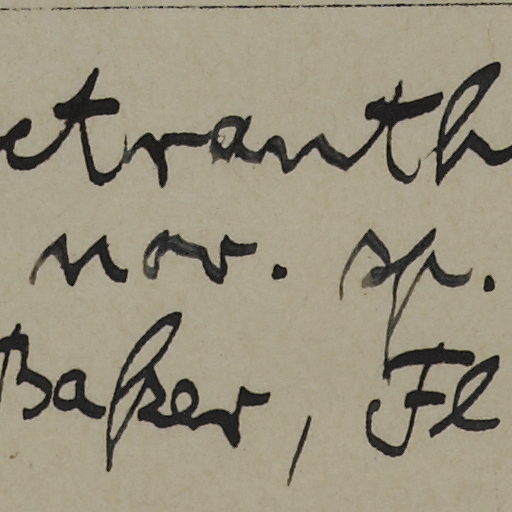 ctranth
nov. sp.
Baker, Fl